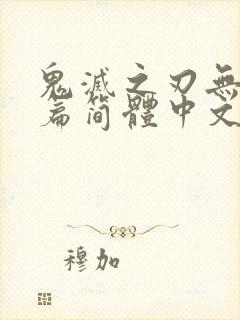 鬼滅之刃無
篇简體中文
穆加